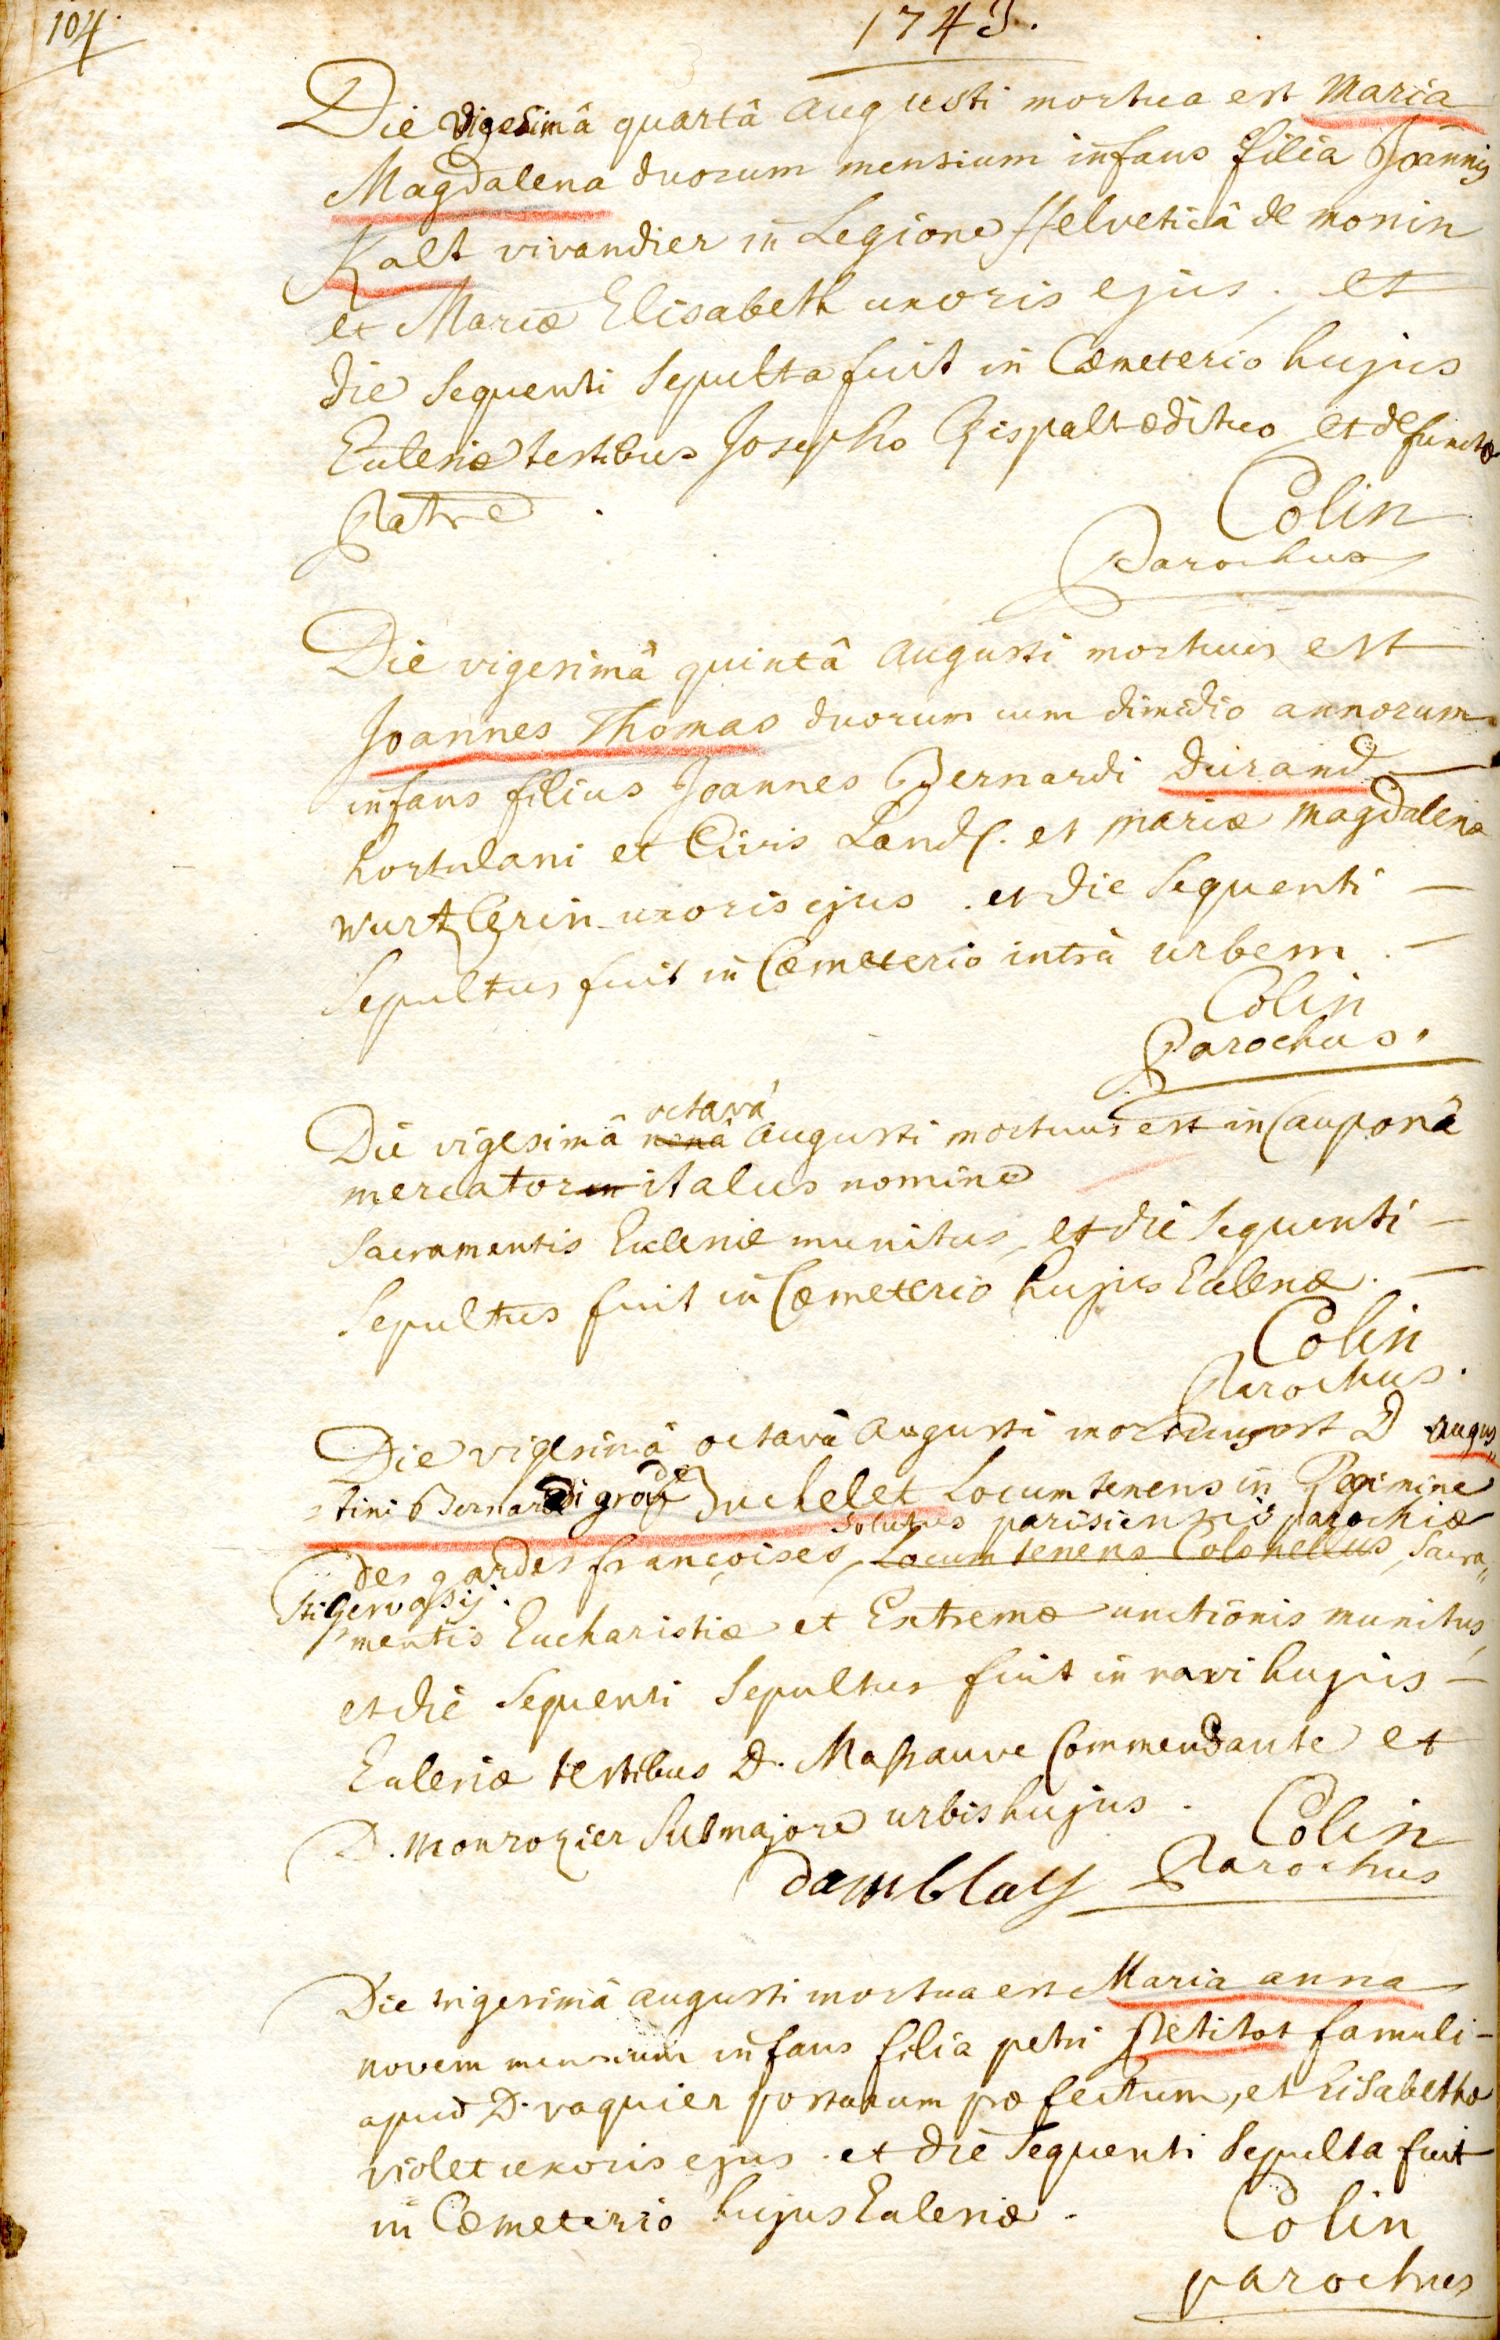 104
1743.
Die vigesimâ quartâ augusti mortua est Maria
Magdalena duorum mensium infans filia Joannis
Kalt vivandier in Legione Helveticâ de monin
et Mariæ Elisabeth uxoris ejus. et
die sequenti sepulta fuit in Cæmeterio hujus
Eclesiæ testibus Josepho Rispalt ædituo et defunctæ
Patre.
Colin
Parochus
Die vigesimâ quintâ augusti mortuus est
Joannes Thomas duorum cum dimidio annorum
infans filius Joannes Bernardi Durand
hortulani et Civis Land. et mariæ magdalenæ
wurtzlerin uxoris ejus. et die sequenti
sepultus fuit in Cæmeterio intrà urbem.
Colin
Parochus.
octavâ
Die vigesimâ nonâ augusti mortuus est in Cauponâ
mercator in italus nomine
sacramentis Eclesiæ munitus, et die sequenti
sepultus fuit in Cæmeterio hujus Eclesiæ.
Colin
Parochus.
Die vigesimâ octavâ augusti mortuus est D augus
tini Bernardi de Juchelet Locum tenens in Regimine
solutus parisiensis parochiæ
des gardes françoises, Locum tenens Colonellus, sacra
sti gervasij.
mentis Eucharistiæ et Extremæ unctionis munitus,
et die sequenti sepultus fuit in navi hujus
Eclesiæ testibus D. Massauve Commendante et
D. Monrozier submajore urbis hujus.
Colin
Damblay Parochus
Die trigesimâ augusti mortua est Maria anna
novem mensium infans filia petri Petitot famuli
apud D. vaquier portarum præfectum, et Elisabethæ
violet uxoris ejus. et die sequenti sepulta fuit
in Cæmeterio hujus Eclesiæ.
Colin
parochus